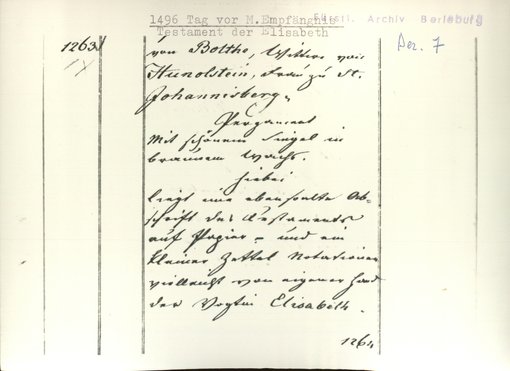 1496 Tag vor M.Empfängnis
Fürstl. Archiv Berleburg
Testament der Elisabeth
Dez. 7
1263
von Bolthe, Wittwe von
Hunolstein, Frau zu St.
Johannisberg.
Pergament
Mit schönem Siegel in
braunem Wachs.
Hiebei
liegt eine ebensoalte Ab-
schrift des Testaments
auf Papier - und ein
kleiner Zettel Notationen
vielleicht von eigener Hand
der Vogtin Elisabeth.
1264